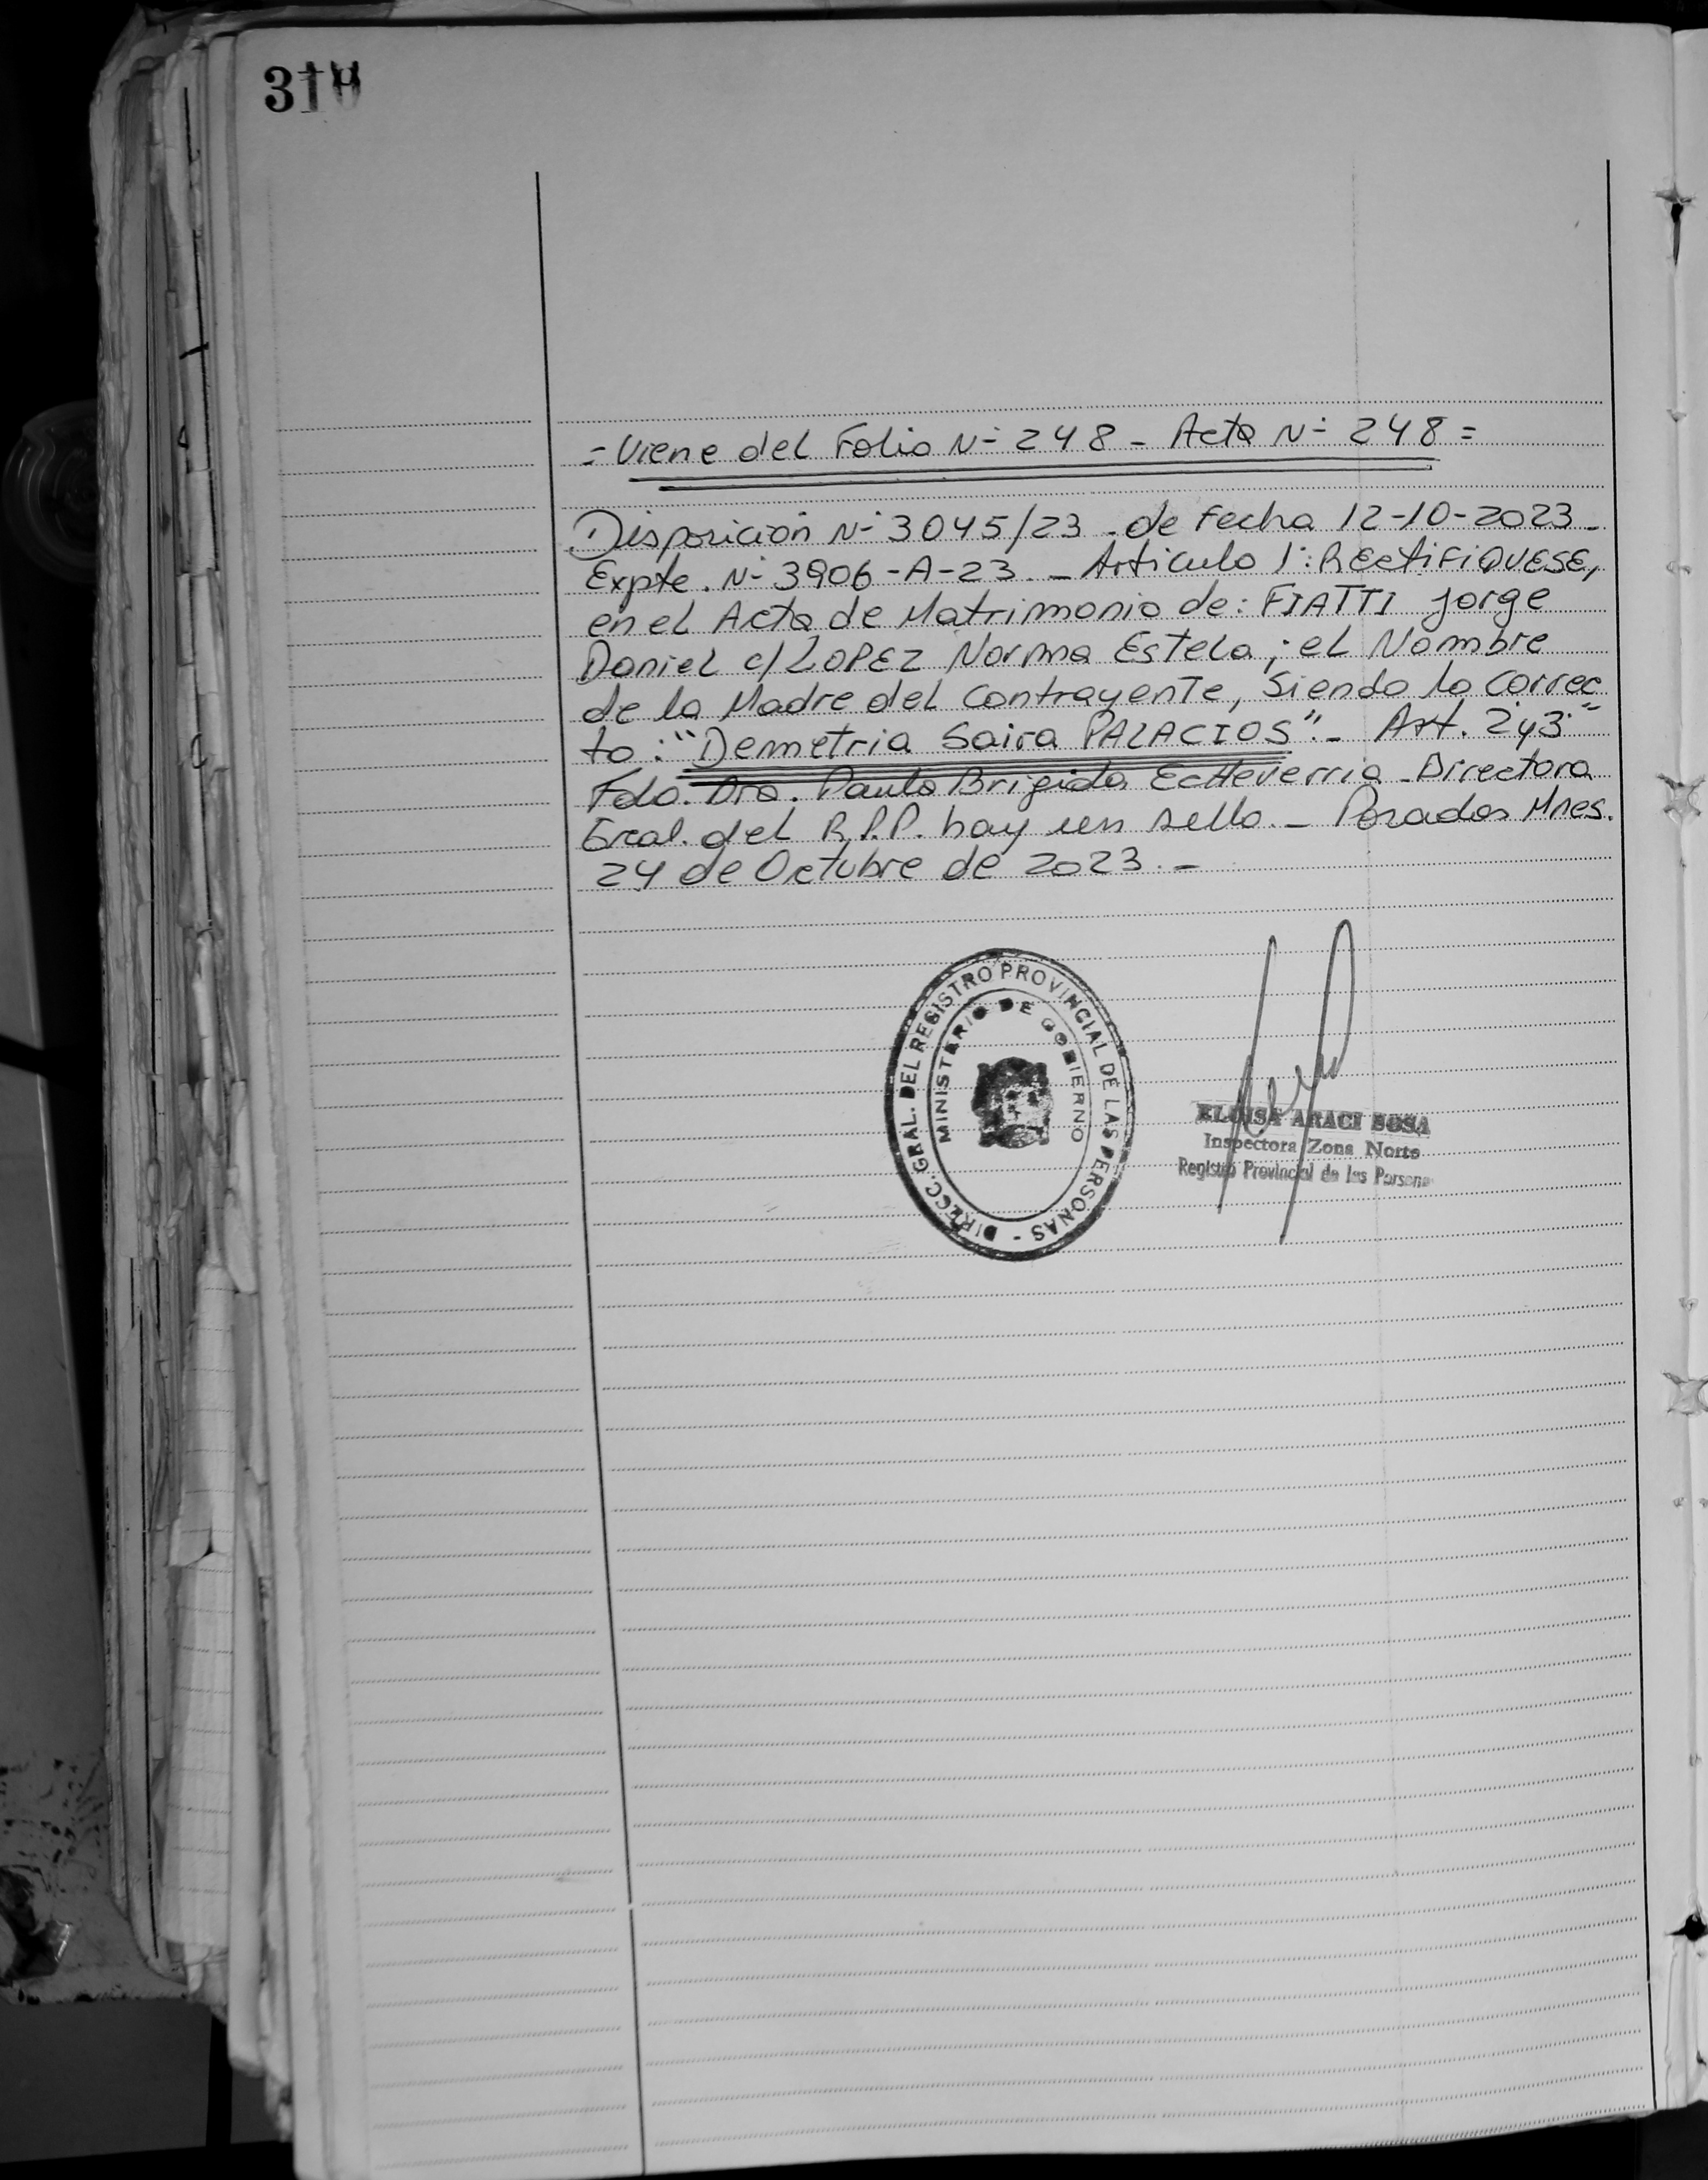 = Viene del Folio N° 248 - Acta N° 248 =
Disposición N° 3045/23 - de Fecha 12-10-2023 -
Expte. N° 3906-A-23. - Articulo 1°: RECTIFIQUESE,
en el Acta de Matrimonio de: FIATTI Jorge
Daniel c/ LOPEZ Norma Estela; el Nombre
de la Madre del Contrayente, Siendo lo Correc
to: "Demetria Saira PALACIOS". - Art. 2 y 3
Fdo. Dra. Paula Brigida Echeverria - Directora
Gral. del R.P.P. hay un sello. - Posadas Mnes.
24 de Octubre de 2023. -
DIRECC. GRAL. DEL REGISTRO PROVINCIAL DE LAS PERSONAS -
MINISTERIO DE GOBIERNO
ELOISA ARACI SOSA
Inspectora Zona Norte
Registro Provincial de las Persona